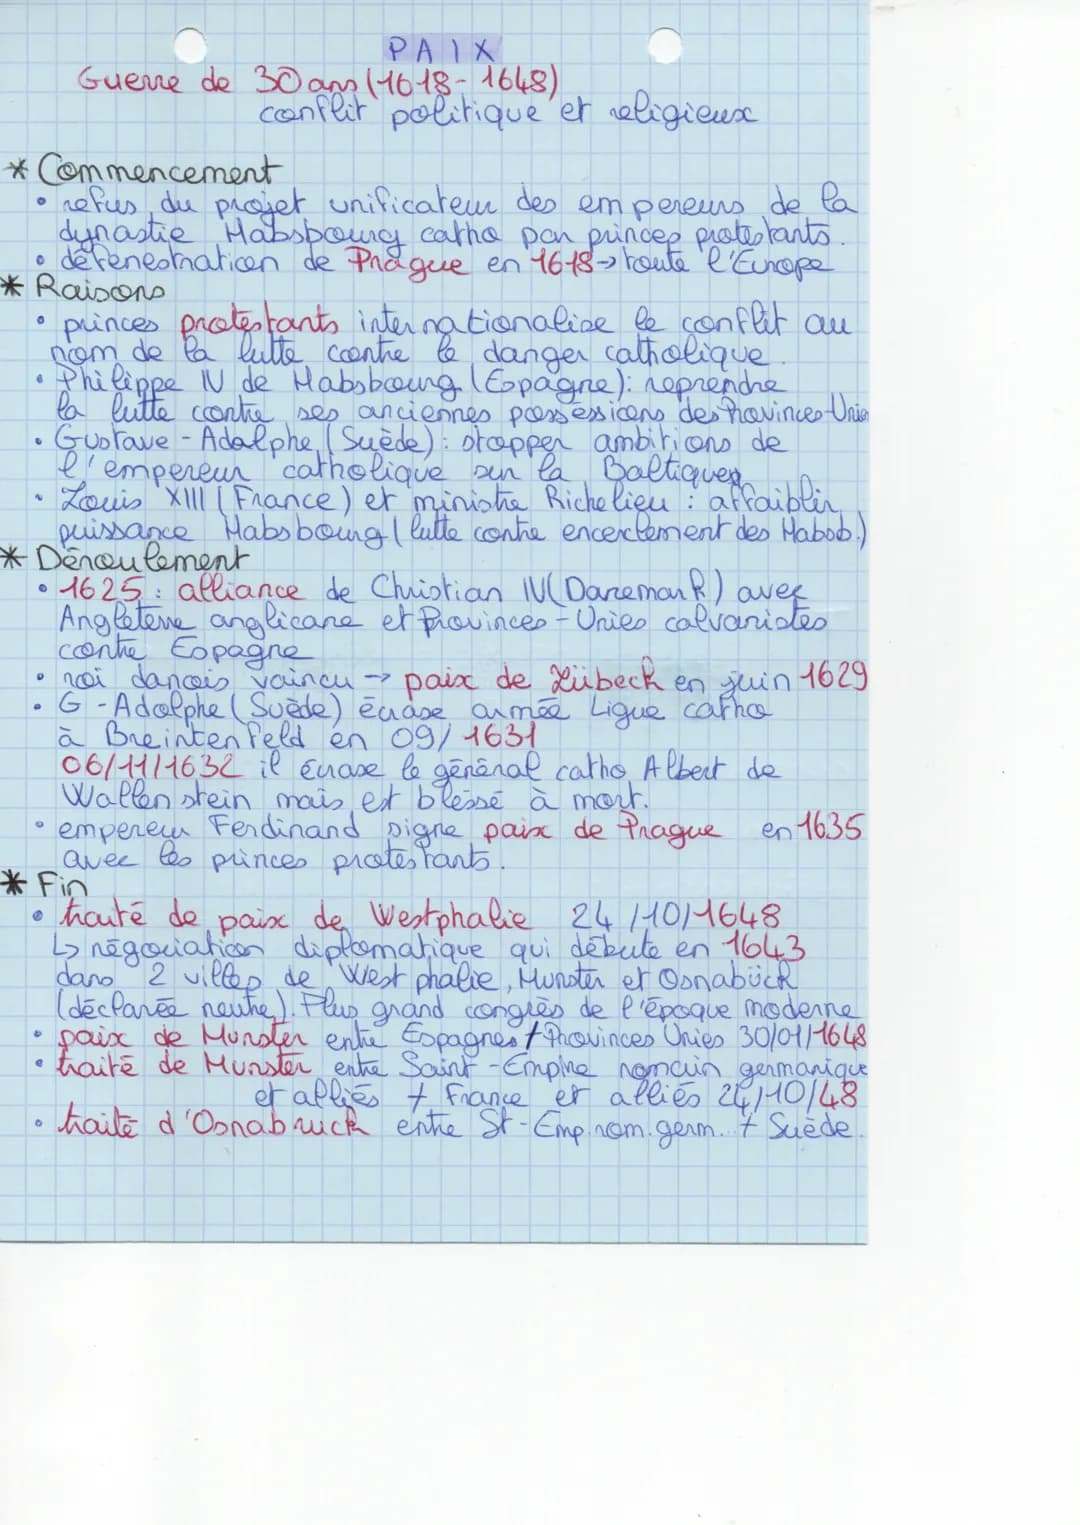 PAIX
Guerre de 30 ans (1618-1648)
conflit politique et religieux
* Commencement
• refus du projet unificateur des empereurs de la
dynastie Habsbourg catho par princes protestants.
• défenestration de Prague en 1618 → toute l'Europe
* Raisons
• princes protestants internationalise le conflit au
nom de la lutte contre le danger catholique.
• Philippe IV de Habsbourg (Espagne) : reprendre
la lutte contre ses anciennes possessions des Provinces-Unies
• Gustave-Adolphe (Suède) : stopper ambitions de
l'empereur catholique sur la Baltique
• Louis XIII (France) et ministre Richelieu : affaiblir
puissance Habsbourg (lutte contre encerclement des Habsb.)
* Déroulement
• 1625 : alliance de Christian IV (Danemark) avec
Angleterre anglicane et Provinces-Unies calvanistes
contre Espagne
• roi danois vaincu → paix de Lübeck en juin 1629
• G-Adolphe (Suède) écrase armée Ligue catho
à Breintenfeld en 09/1631
06/11/1632 il écrase le général catho Albert de
Wallenstein mais est blessé à mort.
• empereur Ferdinand signe paix de Prague en 1635
avec les princes protestants.
* Fin
• traité de paix de Westphalie 24/10/1648
↳ négociation diplomatique qui débute en 1643
dans 2 villes de Westphalie, Munster et Osnabück
(déclarée neutre). Plus grand congrès de l'époque moderne
• paix de Munster entre Espagnes + Provinces Unies 30/01/1648
• traité de Munster entre Saint-Empire romain germanique
et alliés + France et alliés 24/10/48
• traité d'Osnabruck entre St-Emp.rom.germ. + Suède.